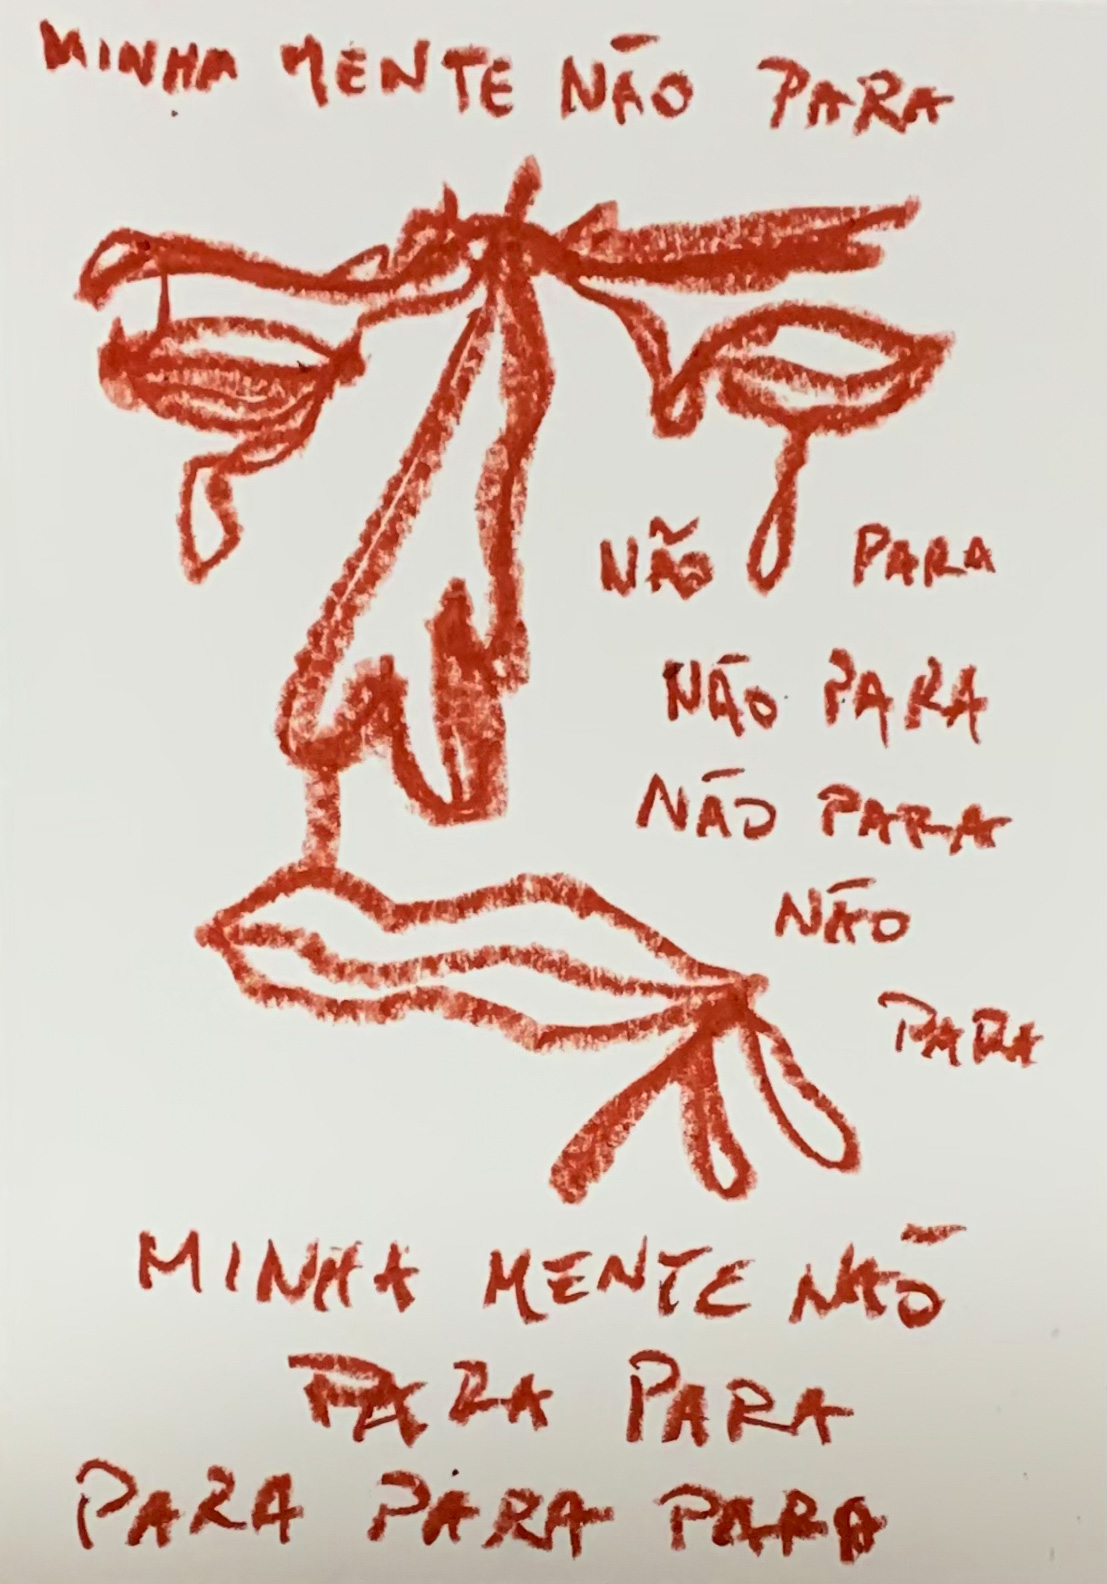 MINHA MENTE NÃO PARA
NÃO PARA
NÃO PARA
NÃO PARA
NÃO
PARA
MINHA MENTE NÃO
PARA PARA
PARA PARA PARA